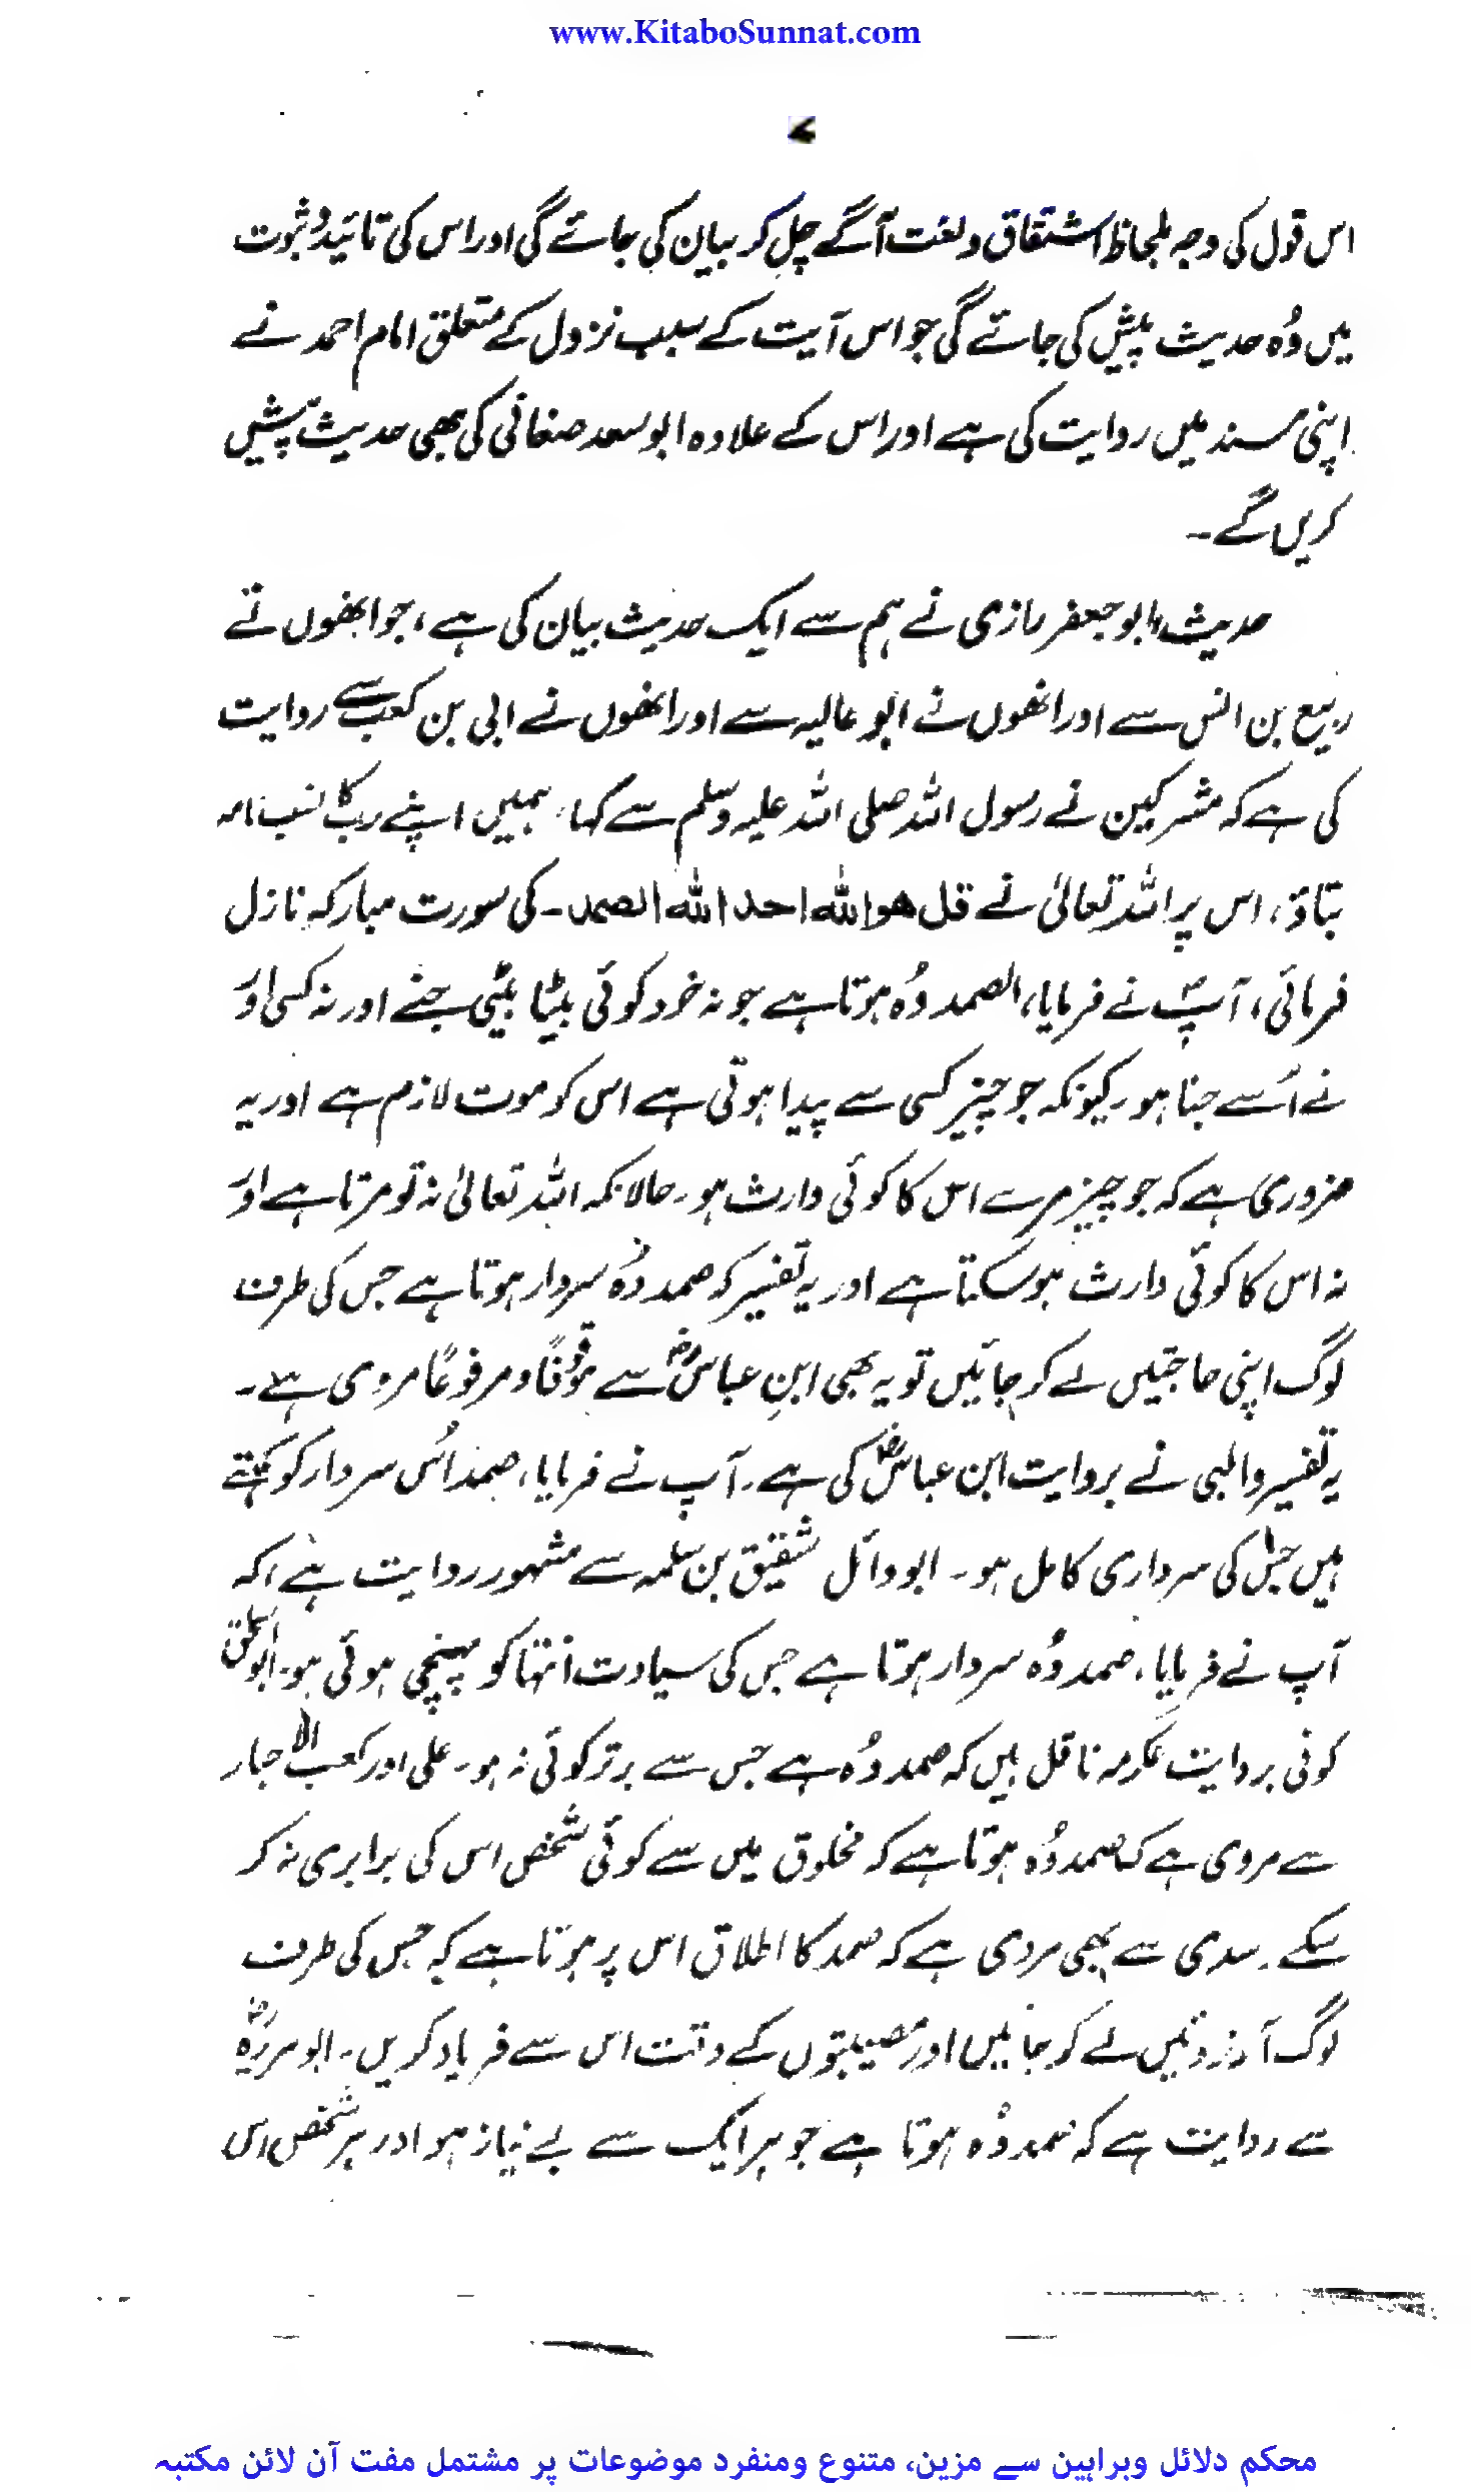 www.KitaboSunnat.com
۷
اس قول کی وجہ بلحاظ اشتقاق ولغت آگے چل کر بیان کی جائے گی اور اس کی تائید وثبوت
میں وُہ حدیث پیش کی جائے گی جو اس آیت کے سبب نزول کے متعلق امام احمد نے
اپنی مسند میں روایت کی ہے اور اس کے علاوہ ابو سعد صغانی کی بھی حدیث پیش
کریں گے۔
حدیث، ابو جعفر رازی نے ہم سے ایک حدیث بیان کی ہے، جو انھوں نے
ربیع بن انس سے اور انھوں نے ابو عالیہ سے اور انھوں نے ابی بن کعب سے روایت
کی ہے کہ مشرکین نے رسول اللہ صلی اللہ علیہ وسلم سے کہا، ہمیں اپنے رب کا نسب نامہ
بتاؤ، اس پر اللہ تعالیٰ نے قل هو الله احد الله الصمد۔ کی سورت مبارکہ نازل
فرمائی، آپؐ نے فرمایا، الصمد وُہ ہوتا ہے جو نہ خود کوئی بیٹا بیٹی جنے اور نہ کسی اور
نے اُسے جنا ہو۔ کیونکہ جو چیز کسی سے پیدا ہوتی ہے اس کو موت لازم ہے اور یہ
ضروری ہے کہ جو چیز مرے اس کا کوئی وارث ہو۔ حالانکہ اللہ تعالیٰ نہ تو مرتا ہے اور
نہ اس کا کوئی وارث ہوسکتا ہے اور یہ تفسیر کہ صمد وُہ سردار ہوتا ہے جس کی طرف
لوگ اپنی حاجتیں لے کر جائیں تو یہ بھی ابنِ عباسؓ سے موقوفًا و مرفوعًا مروی ہے۔
یہ تفسیر والبی نے بروایت ابن عباسؓ کی ہے۔ آپ نے فرمایا، صمد اُس سردار کو کہتے
ہیں جس کی سرداری کامل ہو۔ ابو وائل شقیق بن سلمہ سے مشہور روایت ہے، کہ
آپ نے فرمایا، صمد وُہ سردار ہوتا ہے جس کی سیادت انتہا کو پہنچی ہوئی ہو۔ ابو اسحٰق
کوفی بروایت عکرمہ ناقل ہیں کہ صمد وُہ ہے جس سے برتر کوئی نہ ہو۔ علی اور کعب الاحبار
سے مروی ہے کہ صمد وُہ ہوتا ہے کہ مخلوق میں سے کوئی شخص اس کی برابری نہ کر
سکے۔ سدی سے بھی مروی ہے کہ صمد کا اطلاق اس پر ہوتا ہے کہ جس کی طرف
لوگ آرزوئیں لے کر جائیں اور مصیبتوں کے وقت اس سے فریاد کریں۔ ابوہریرہؓ
سے روایت ہے کہ صمد وُہ ہوتا ہے جو ہر ایک سے بے نیاز ہو اور ہر شخص اس
محکم دلائل وبراہین سے مزین، متنوع ومنفرد موضوعات پر مشتمل مفت آن لائن مکتبہ